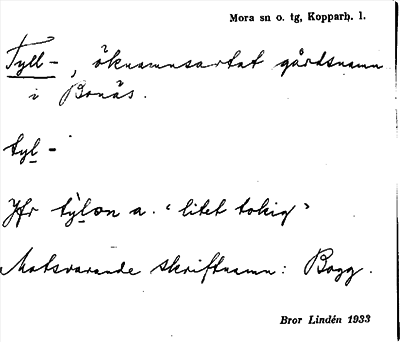 Mora sn o. tg, Kopparb. l.
Tyll-, öknamnsartat gårdsnamn
i Bonäs.
tyl-
Jfr tỳlon a. "litet tokig"
Motsvarande skriftnamn: Bogg.
Bror Lindén 1933